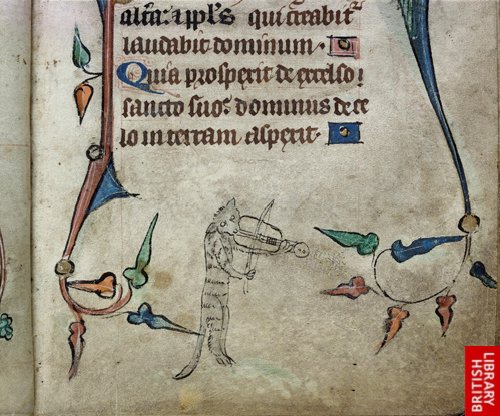 alt̄a: ⁊ ppl's qui creabit᷑
laudabit dominum.
Quia prospexit de excelso
sancto suo: dominus de ce
lo in terram aspexit.
BRITISH
LIBRARY